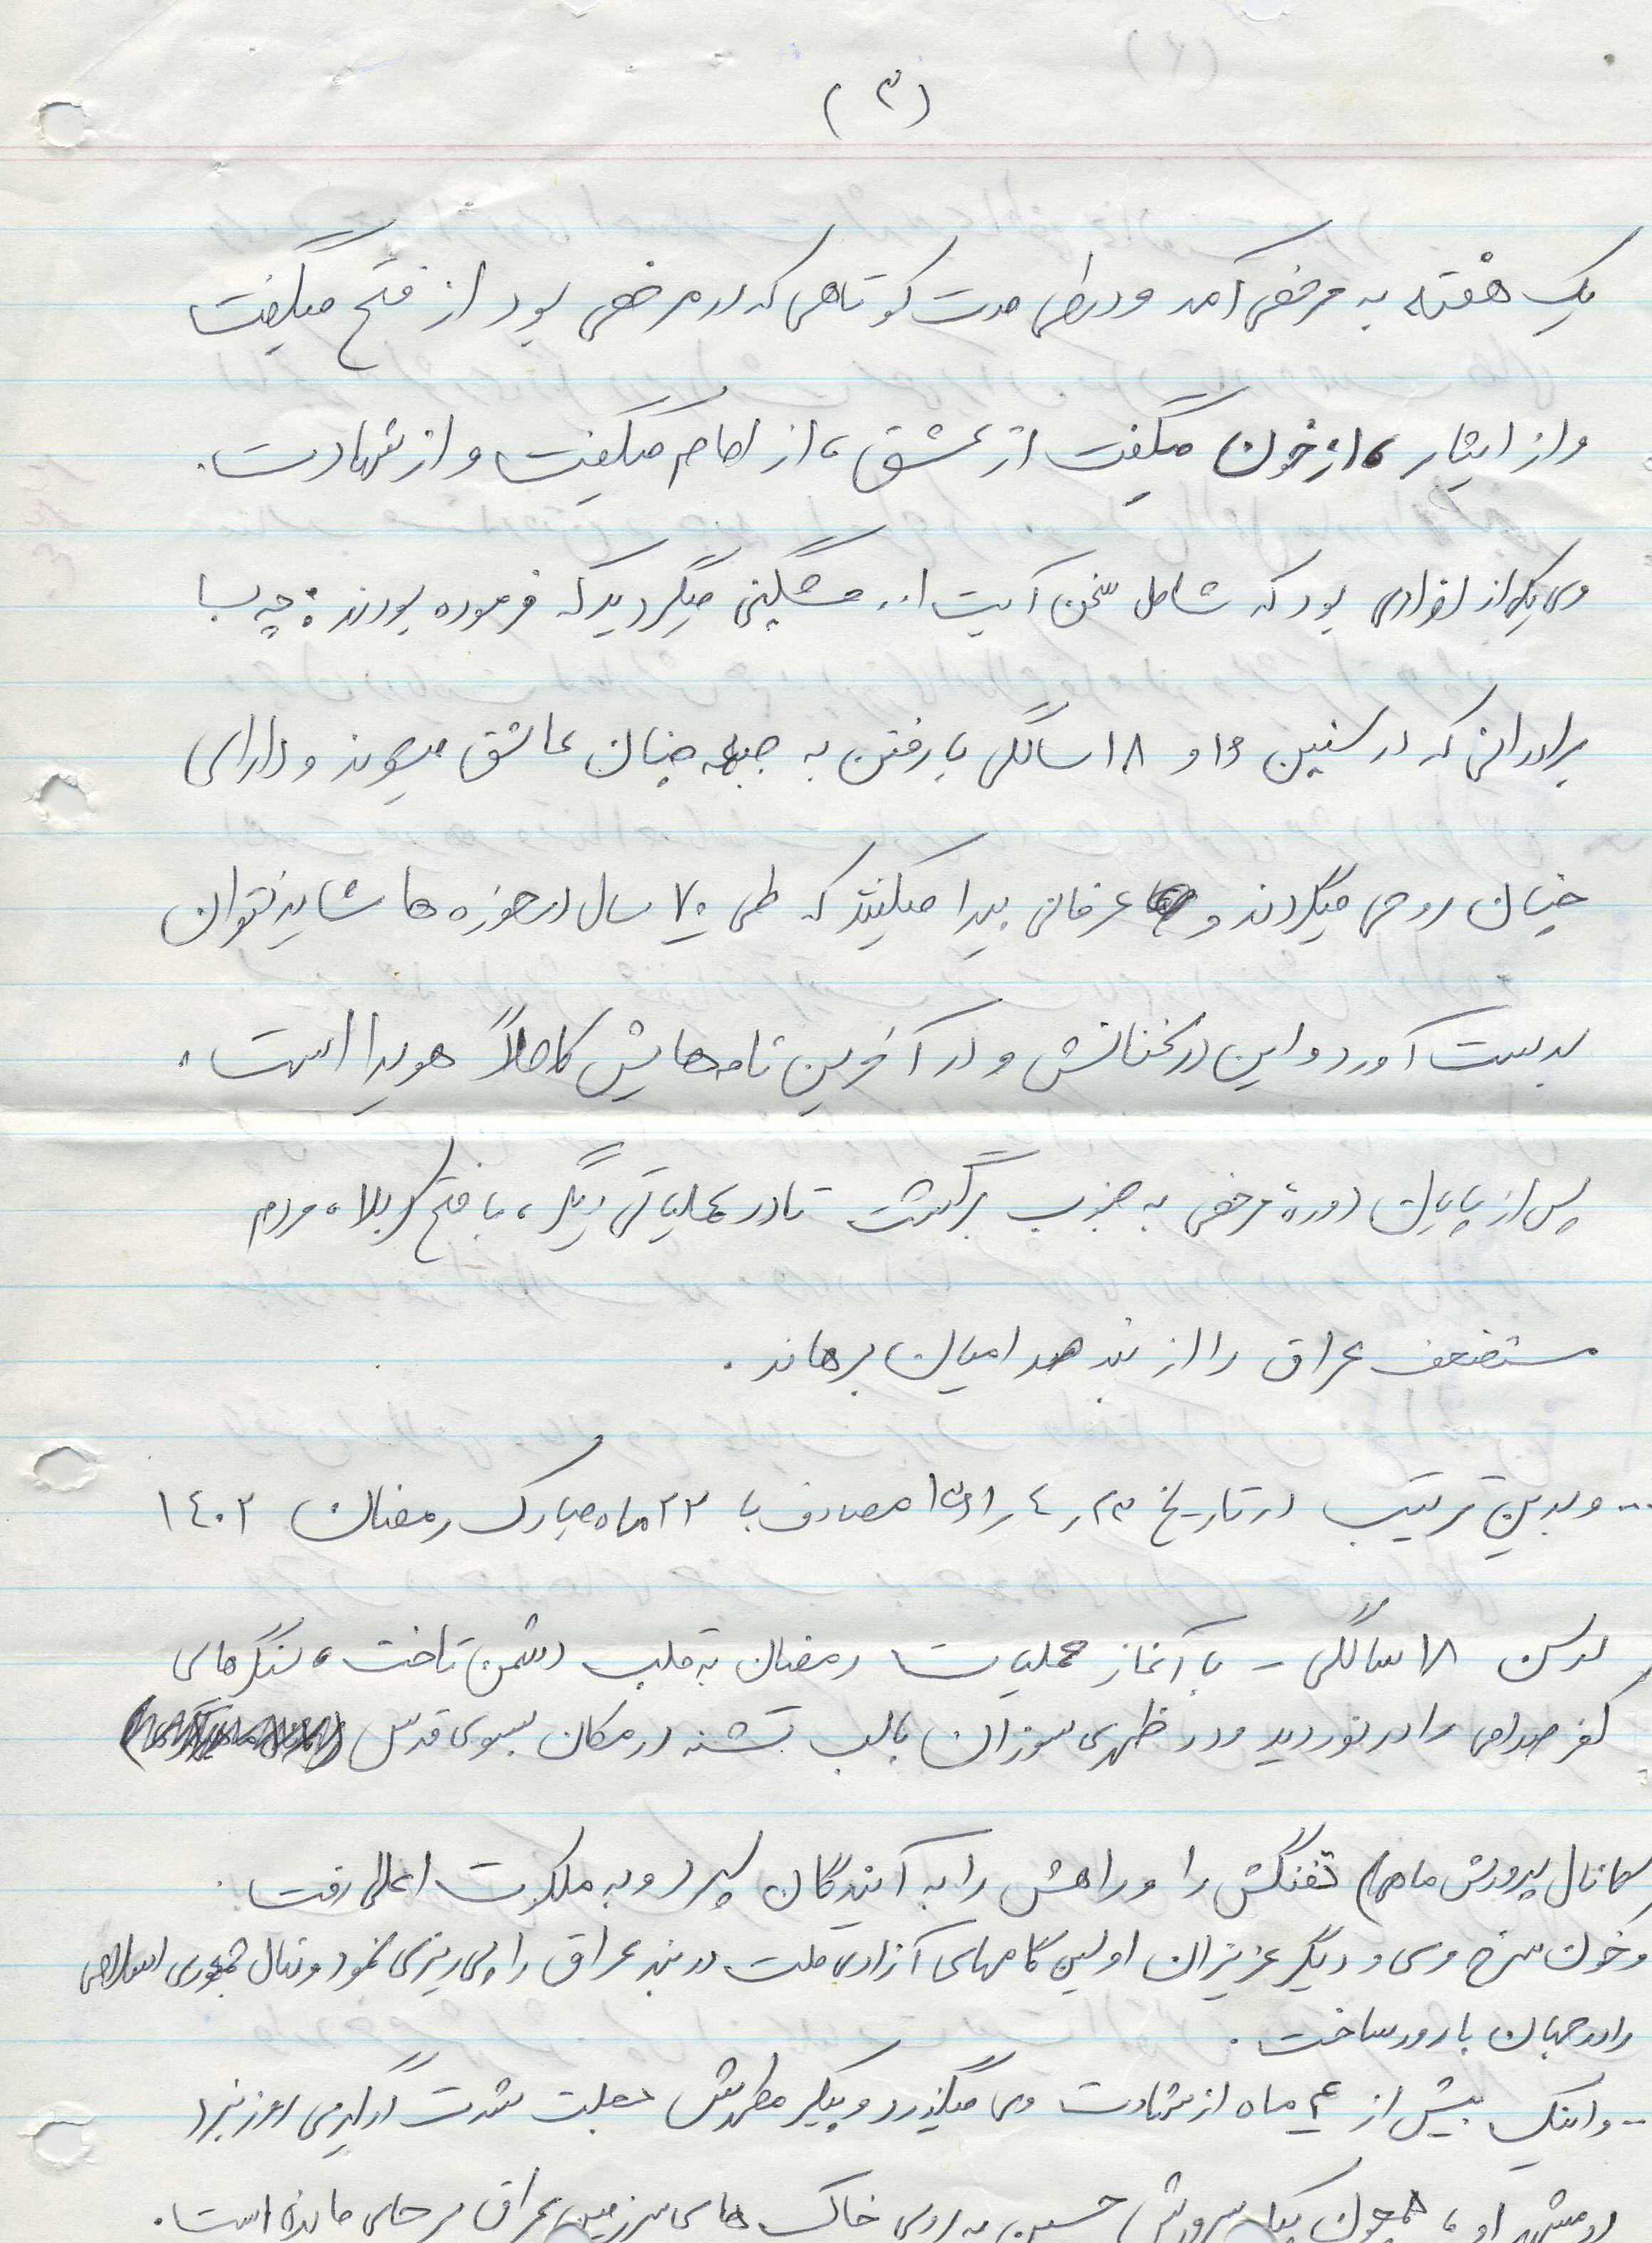 (۳)
یک هفته به مرخصی آمد و در طی مدت کوتاهی که در مرخصی بود از فتح میگفت
و از ایثار، از خون میگفت از عشق، از امام میگفت و از شهادت.
وی یکی از افرادی بود که شامل سخن آیت ا.. مشگینی میگردید که فرموده بودند: چه بسا
برادرانی که در سنین ۱۶ و ۱۸ سالگی با رفتن به جبهه چنان عاشق میشوند و دارای
چنان روحی میگردند و عرفانی پیدا میکنند که طی ۷۰ سال در حوزه ها شاید نتوان
بدست آورد و این در سخنانش و در آخرین نامه هایش کاملاً هویدا است.
پس از پایان دورۀ مرخصی به جنوب برگشت تا در عملیاتی دیگر، با فتح کربلا، مردم
مستضعف عراق را از بند صدامیان برهاند.
... و بدین ترتیب در تاریخ ۲۳ر۴ر۱۳۶۱ مصادف با ۲۲ ماه مبارک رمضان ۱۴۰۲
در سن ۱۸ سالگی - با آغاز عملیات رمضان به قلب دشمن تاخت، سنگرهای
کفر صدامی را در نوردید و در ظهری سوزان با لب تشنه در مکان بسوی قدس
(کانال پرورش ماهی) تفنگش را و راهش را به آیندگان سپرد و به ملکوت اعلی رفت.
و خون سرخ وی و دیگر عزیزان اولین گامهای آزادی ملت در بند عراق را پی ریزی نمود و نهال جمهوری اسلامی
را در جهان بارور ساخت.
... و اینک بیش از ۴ ماه از شهادت وی میگذرد و پیکر مطهرش بعلت شدت درگیری روز نبرد
در مشهد او، همچون پیکر سرورش حسین به روی خاک های سرزمین عراق بر جای مانده است.